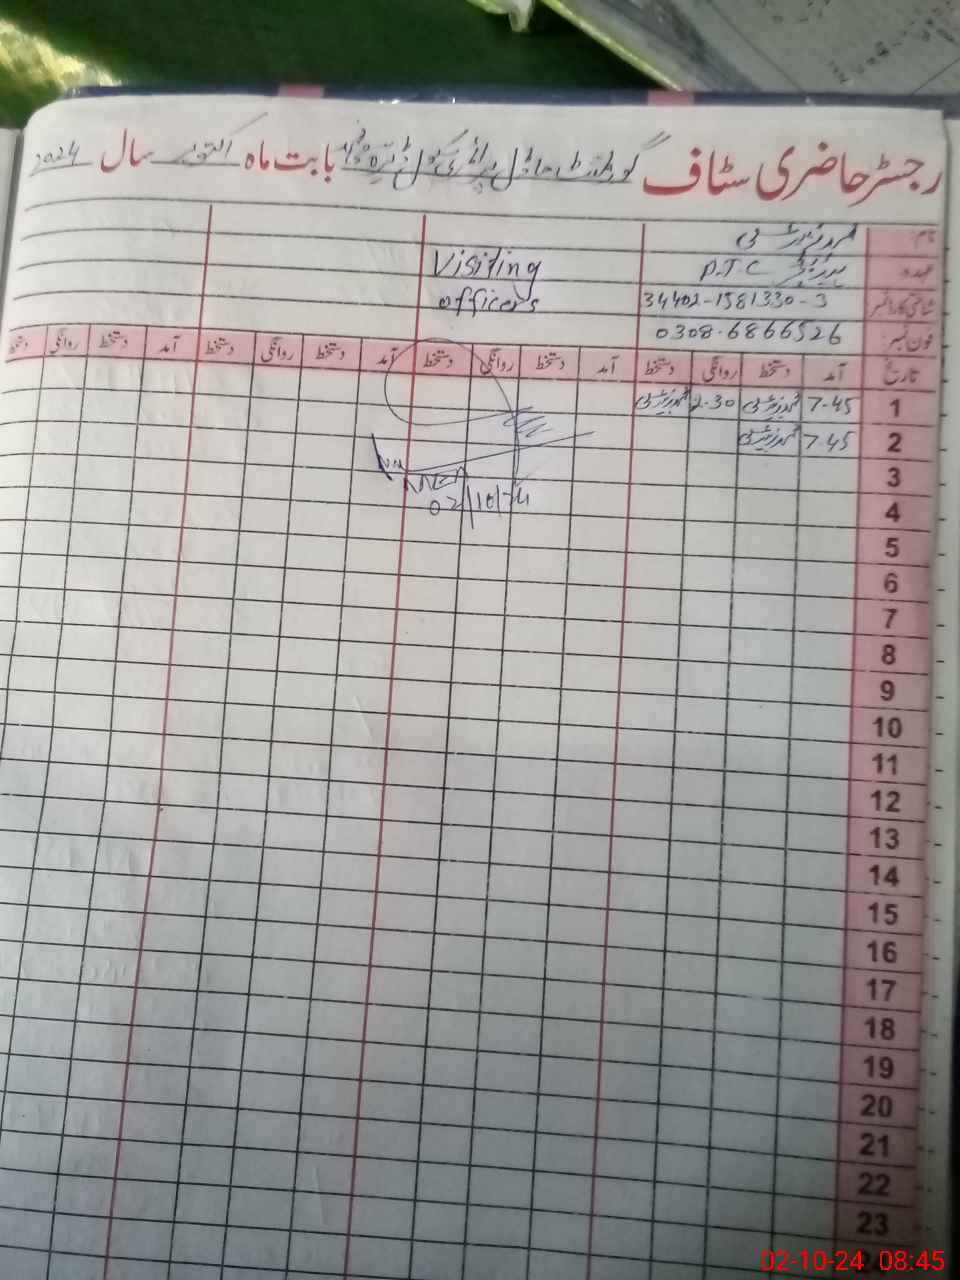 رجسٹر حاضری سٹاف گورنمنٹ ماڈل پرائمری سکول ڈیرہ بابت ماہ اکتوبر سال 2024
نام:
عہدہ P.T.C
شناختی کارڈ نمبر 34402-1581330-3
فون نمبر: 0308-6866526
Visiting
officers
تاریخ آمد دستخط روانگی دستخط آمد دستخط روانگی دستخط آمد دستخط روانگی دستخط آمد دستخط روانگی دستخط
1 7-45 2-30
2 7-45
3
4
02/10/24
5
6
7
8
9
10
11
12
13
14
15
16
17
18
19
20
21
22
23
02-10-24 08:45